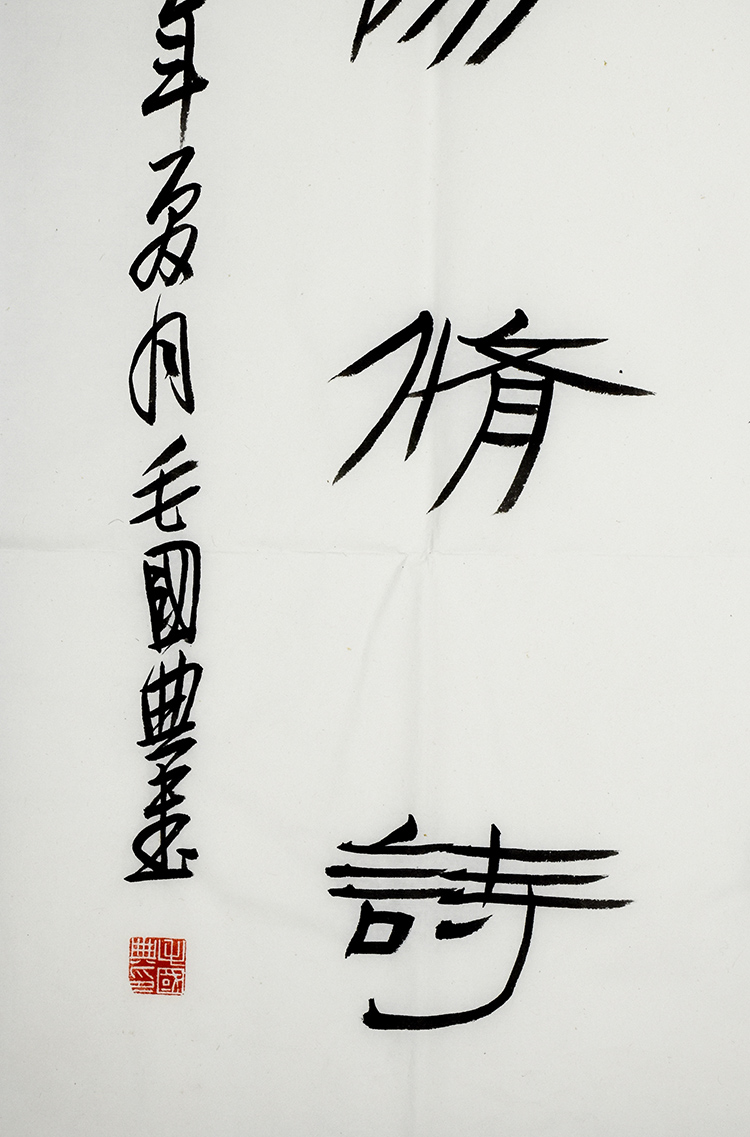 脩詩
年夏月毛國典書
毛國典印